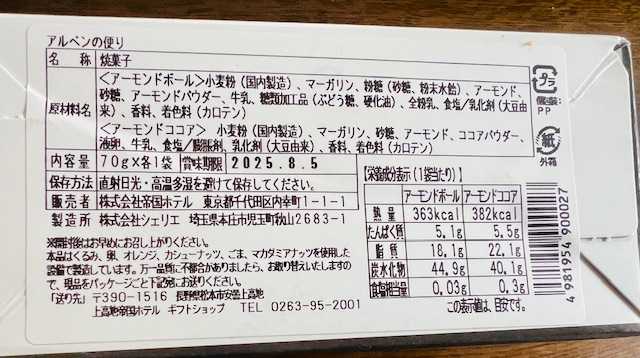 アルペンの便り
名 称 焼菓子
原材料名
<アーモンドボール>小麦粉(国内製造)、マーガリン、粉糖(砂糖、粉末水飴)、アーモンド、
砂糖、アーモンドパウダー、牛乳、糖類加工品(ぶどう糖、硬化油)、全粉乳、食塩/乳化剤(大豆由
来)、香料、着色料(カロテン)
<アーモンド・ココア> 小麦粉(国内製造)、マーガリン、砂糖、アーモンド、ココアパウダー、
液卵、牛乳、食塩/膨脹剤、乳化剤(大豆由来)、香料、着色料(カロテン)
内容量 70g×各1袋 賞味期限 2025.8.5
保存方法 直射日光・高温多湿を避けて保存してください。
販売者 株式会社帝国ホテル 東京都千代田区内幸町1-1-1
製造所 株式会社シェリエ 埼玉県本庄市児玉町秋山2683-1
※開封後はお早めにお召し上がりください。
本品はくるみ、卵、オレンジ、カシューナッツ、ごま、マカダミアナッツを使用した
設備で製造しています。万一品質に不都合がありましたら、お取り替えいたしますの
で、現品をパッケージごと下記宛にお送りください。
「送り先」〒390-1516 長野県松本市安曇上高地
上高地帝国ホテル ギフトショップ TEL 0263-95-2001
【栄養成分表示(1袋当たり)】
アーモンドボール アーモンドココア
熱量 363kcal 382kcal
たんぱく質 5.1g 5.5g
脂質 18.1g 22.1g
炭水化物 44.9g 40.1g
食塩相当量 0.03g 0.3g
この表示値は、目安です。
プラ
個装:
PP
紙
外箱
4981954900027